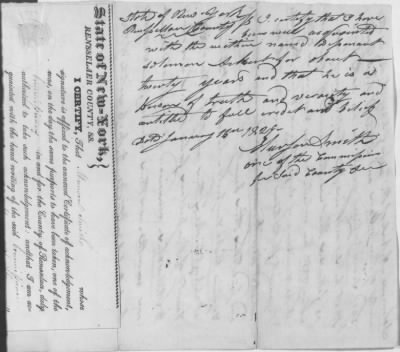 State of New York
Rensselaer County } SS. I certify that I have
been well acquainted
with the within named Deponent
Solomon for about
twenty years and that he is a
person of truth and veracity and
entitled to full credit and belief
Dated January 18th 1827
Smith
one of the Commissioners
for said County &c
State of New-York, }
RENSSELAER COUNTY, SS.
I CERTIFY, That whose
signature is affixed to the annexed Certificate of acknowledgement,
was, on the day the same purports to have been taken, one of the
in and for the County of Rensselaer, duly
authorised to take such acknowledgement; and that I am ac-
quainted with the hand writing of the said